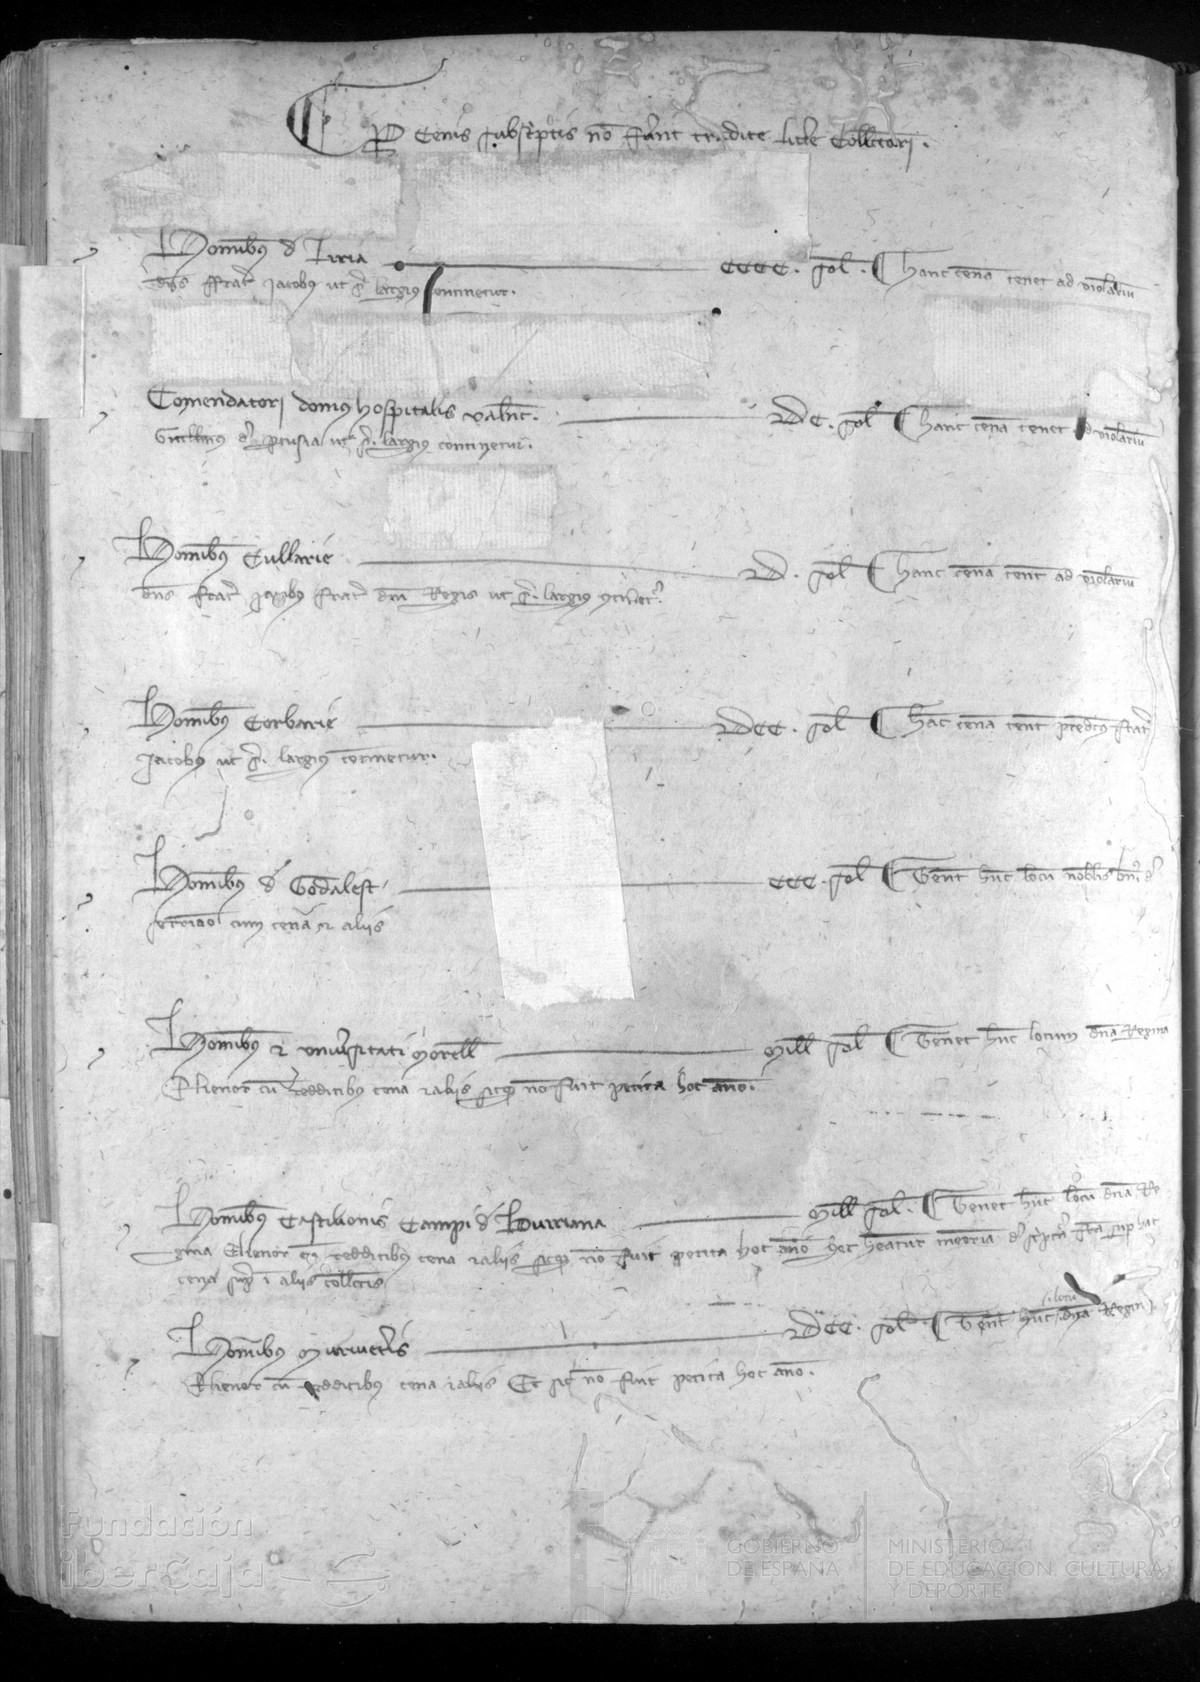 P Cenis subscriptis no fuerit tradite littere Collectori.
Hominibus de Liria CCCC. sol. Hanc cena tenet ad violariu
dns ffratr Jacobus ut s. largius continetur.
Comendatori domus hospitalis valnc. DC. sol Hanc cena tenet ad violariu
Guillmus de s. largius continetur.
Hominibus Cullarie D. sol Hanc cena tenet ad violariu
dns frat Jacobus frat dni Regis ut s. largius
Hominibus Corbarie DCC. sol Hanc cena tenet predcus frat
Jacobus ut s. largius continetur.
Hominibus de Godalest CCC. sol Tenet hunc locu nobilis
cum cena et aliis
Hominibus et universitati Morelle Mille sol Tenet hunc locum dna Regina
Elienor cu redditibus cena et aliis sicque non fuit petita hoc anno.
Hominibus Castilionis Campi de Burriana Mille sol. Tenet hunc locu dna Re
gina Elienor cum redditibus cena et aliis sicque non fuit petita hoc anno et hoc habeatur memoria de sup hac
cena sup i aliis collectis
Hominibus Muriveteris DCC. sol. Tenet hunc locu dna Regina
Elienor cu redditibus cena et aliis Et sic no fuit petita hoc anno.
Fundación
iberCaja
GOBIERNO
DE ESPAÑA
MINISTERIO
DE EDUCACIÓN, CULTURA
Y DEPORTE